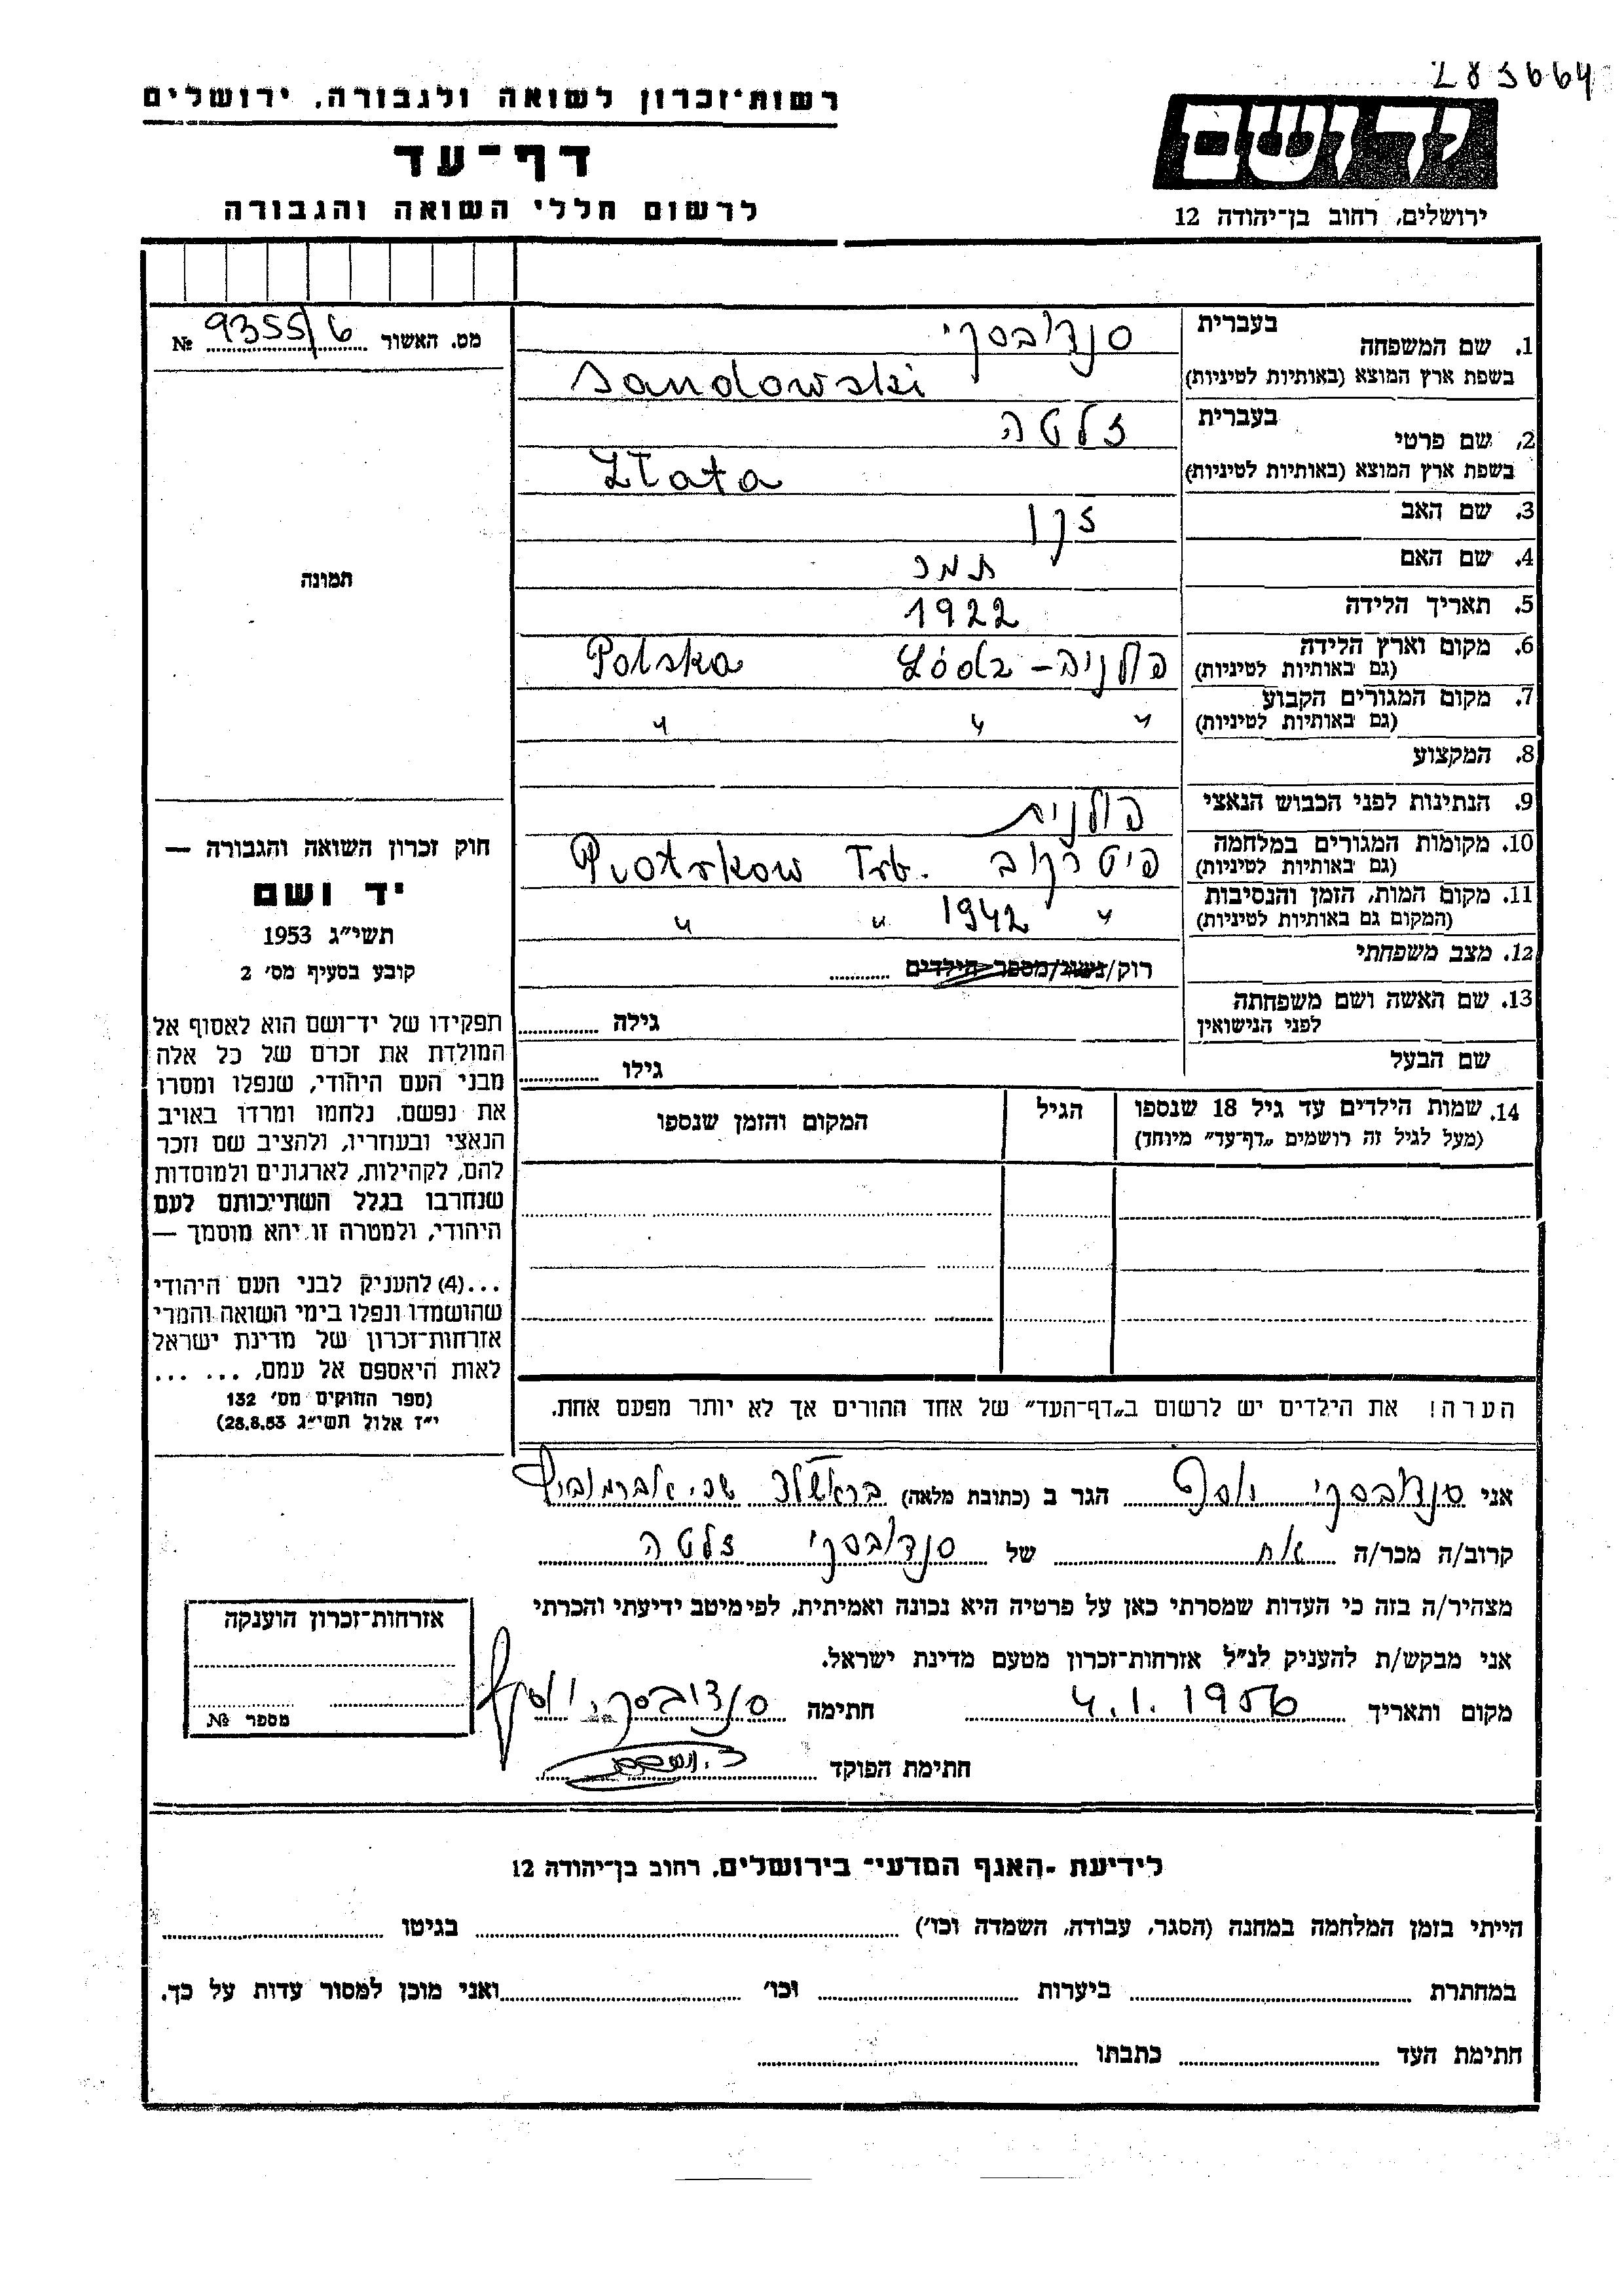 283664
רשות־זכרון לשואה ולגבורה, ירושלים
דף־עד
לרשום חללי השואה והגבורה
יד ושם
ירושלים, רחוב בן־יהודה 12
מס. האשור № 9355/6
תמונה
1. שם המשפחה בעברית סנדובסקי
בשפת ארץ המוצא (באותיות לטיניות) Sandowski
2. שם פרטי בעברית זלטה
בשפת ארץ המוצא (באותיות לטיניות) Złata
3. שם האב
4. שם האם
5. תאריך הלידה 1922
6. מקום וארץ הלידה פולניה – Łódz Polska
(גם באותיות לטיניות)
7. מקום המגורים הקבוע " " "
(גם באותיות לטיניות)
8. המקצוע
9. הנתינות לפני הכבוש הנאצי פולנית
10. מקומות המגורים במלחמה פיטרקוב Piotrkow Trb.
(גם באותיות לטיניות)
11. מקום המות, הזמן והנסיבות " 1942 " "
(המקום גם באותיות לטיניות)
12. מצב משפחתי רוק/נשוי/מספר הילדים
13. שם האשה ושם משפחתה גילה
לפני הנישואין
שם הבעל גילו
14. שמות הילדים עד גיל 18 שנספו הגיל המקום והזמן שנספו
(מעל לגיל זה רושמים „דף־עד” מיוחד)
הערה! את הילדים יש לרשום ב„דף־העד” של אחד ההורים אך לא יותר מפעם אחת.
חוק זכרון השואה והגבורה —
יד ושם
תשי״ג 1953
קובע בסעיף מס׳ 2
תפקידו של יד־ושם הוא לאסוף אל
המולדת את זכרם של כל אלה
מבני העם היהודי, שנפלו ומסרו
את נפשם, נלחמו ומרדו באויב
הנאצי ובעוזריו, ולהציב שם וזכר
להם, לקהילות, לארגונים ולמוסדות
שנחרבו בגלל השתייכותם לעם
היהודי, ולמטרה זו יהא מוסמך —
...(4) להעניק לבני העם היהודי
שהושמדו ונפלו בימי השואה והמרי
אזרחות־זכרון של מדינת ישראל
לאות היאספם אל עמם, ... ...
(ספר החוקים מס׳ 132
י״ז אלול תשי״ג 28.8.53)
אני סנדובסקי יוסף הגר ב (כתובת מלאה)
קרוב/ה מכר/ה אח של סנדובסקי זלטה
מצהיר/ה בזה כי העדות שמסרתי כאן על פרטיה היא נכונה ואמיתית, לפי מיטב ידיעתי והכרתי
אני מבקש/ת להעניק לנ״ל אזרחות־זכרון מטעם מדינת ישראל.
מקום ותאריך 4.1.1956 חתימה סנדובסקי יוסף
חתימת הפוקד
אזרחות־זכרון הוענקה
מספר №
לידיעת ־האגף המדעי־ בירושלים, רחוב בן־יהודה 12
הייתי בזמן המלחמה במחנה (הסגר, עבודה, השמדה וכו׳) בגיטו
במחתרת ביערות וכו׳ ואני מוכן למסור עדות על כך.
חתימת העד כתבתו